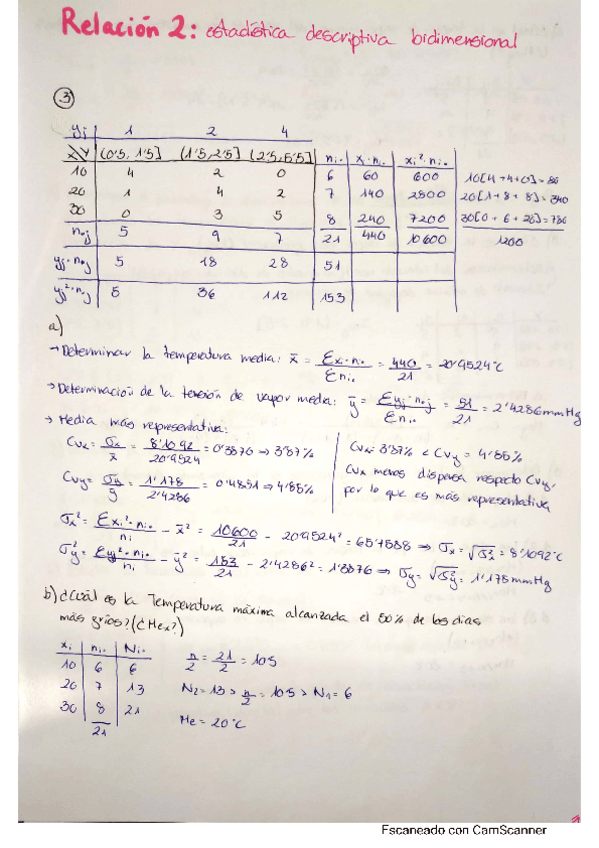 Relación 2: estadística descriptiva bidimensional
3
yj 1 2 4
X\Y (0'5, 1'5] (1'5, 2'5] (2'5, 5'5] ni• xi·ni• xi²·ni•
10 4 2 0 6 60 600 10[4+4+0]=80
20 1 4 2 7 140 2800 20[1+8+8]=340
30 0 3 5 8 240 7200 30[0+6+28]=780
n•j 5 9 7 21 440 10600 1200
yj·n•j 5 18 28 51
yj²·n•j 5 36 112 153
a)
→ Determinar la temperatura media: x̄ = Σxi·ni• / Σni• = 440/21 = 20'9524°C
→ Determinación de la tensión de vapor media: ȳ = Σyj·n•j / Σn•j = 51/21 = 2'4286 mmHg
→ Media más representativa:
CVx = σx/x̄ = 8'1092/20'9524 = 0'3876 ⇒ 3'87%
CVy = σy/ȳ = 1'178/2'4286 = 0'4851 ⇒ 4'85%
CVx = 3'87% < CVy = 4'85%
CVx menos dispersa respecto CVy,
por lo que es más representativa
σx² = Σxi²·ni•/ni − x̄² = 10600/21 − 20'9524² = 65'7588 ⇒ σx = √σx² = 8'1092°C
σy² = Σyj²·n•j/ni − ȳ² = 153/21 − 2'4286² = 1'3876 ⇒ σy = √σy² = 1'178 mmHg
b) ¿Cuál es la Temperatura máxima alcanzada el 50% de los días
más fríos? (¿Mex?)
xi ni• Ni•
10 6 6
20 7 13
30 8 21
21
n/2 = 21/2 = 10'5
N2 = 13 > n/2 = 10'5 > N1 = 6
Me = 20°C
Escaneado con CamScanner